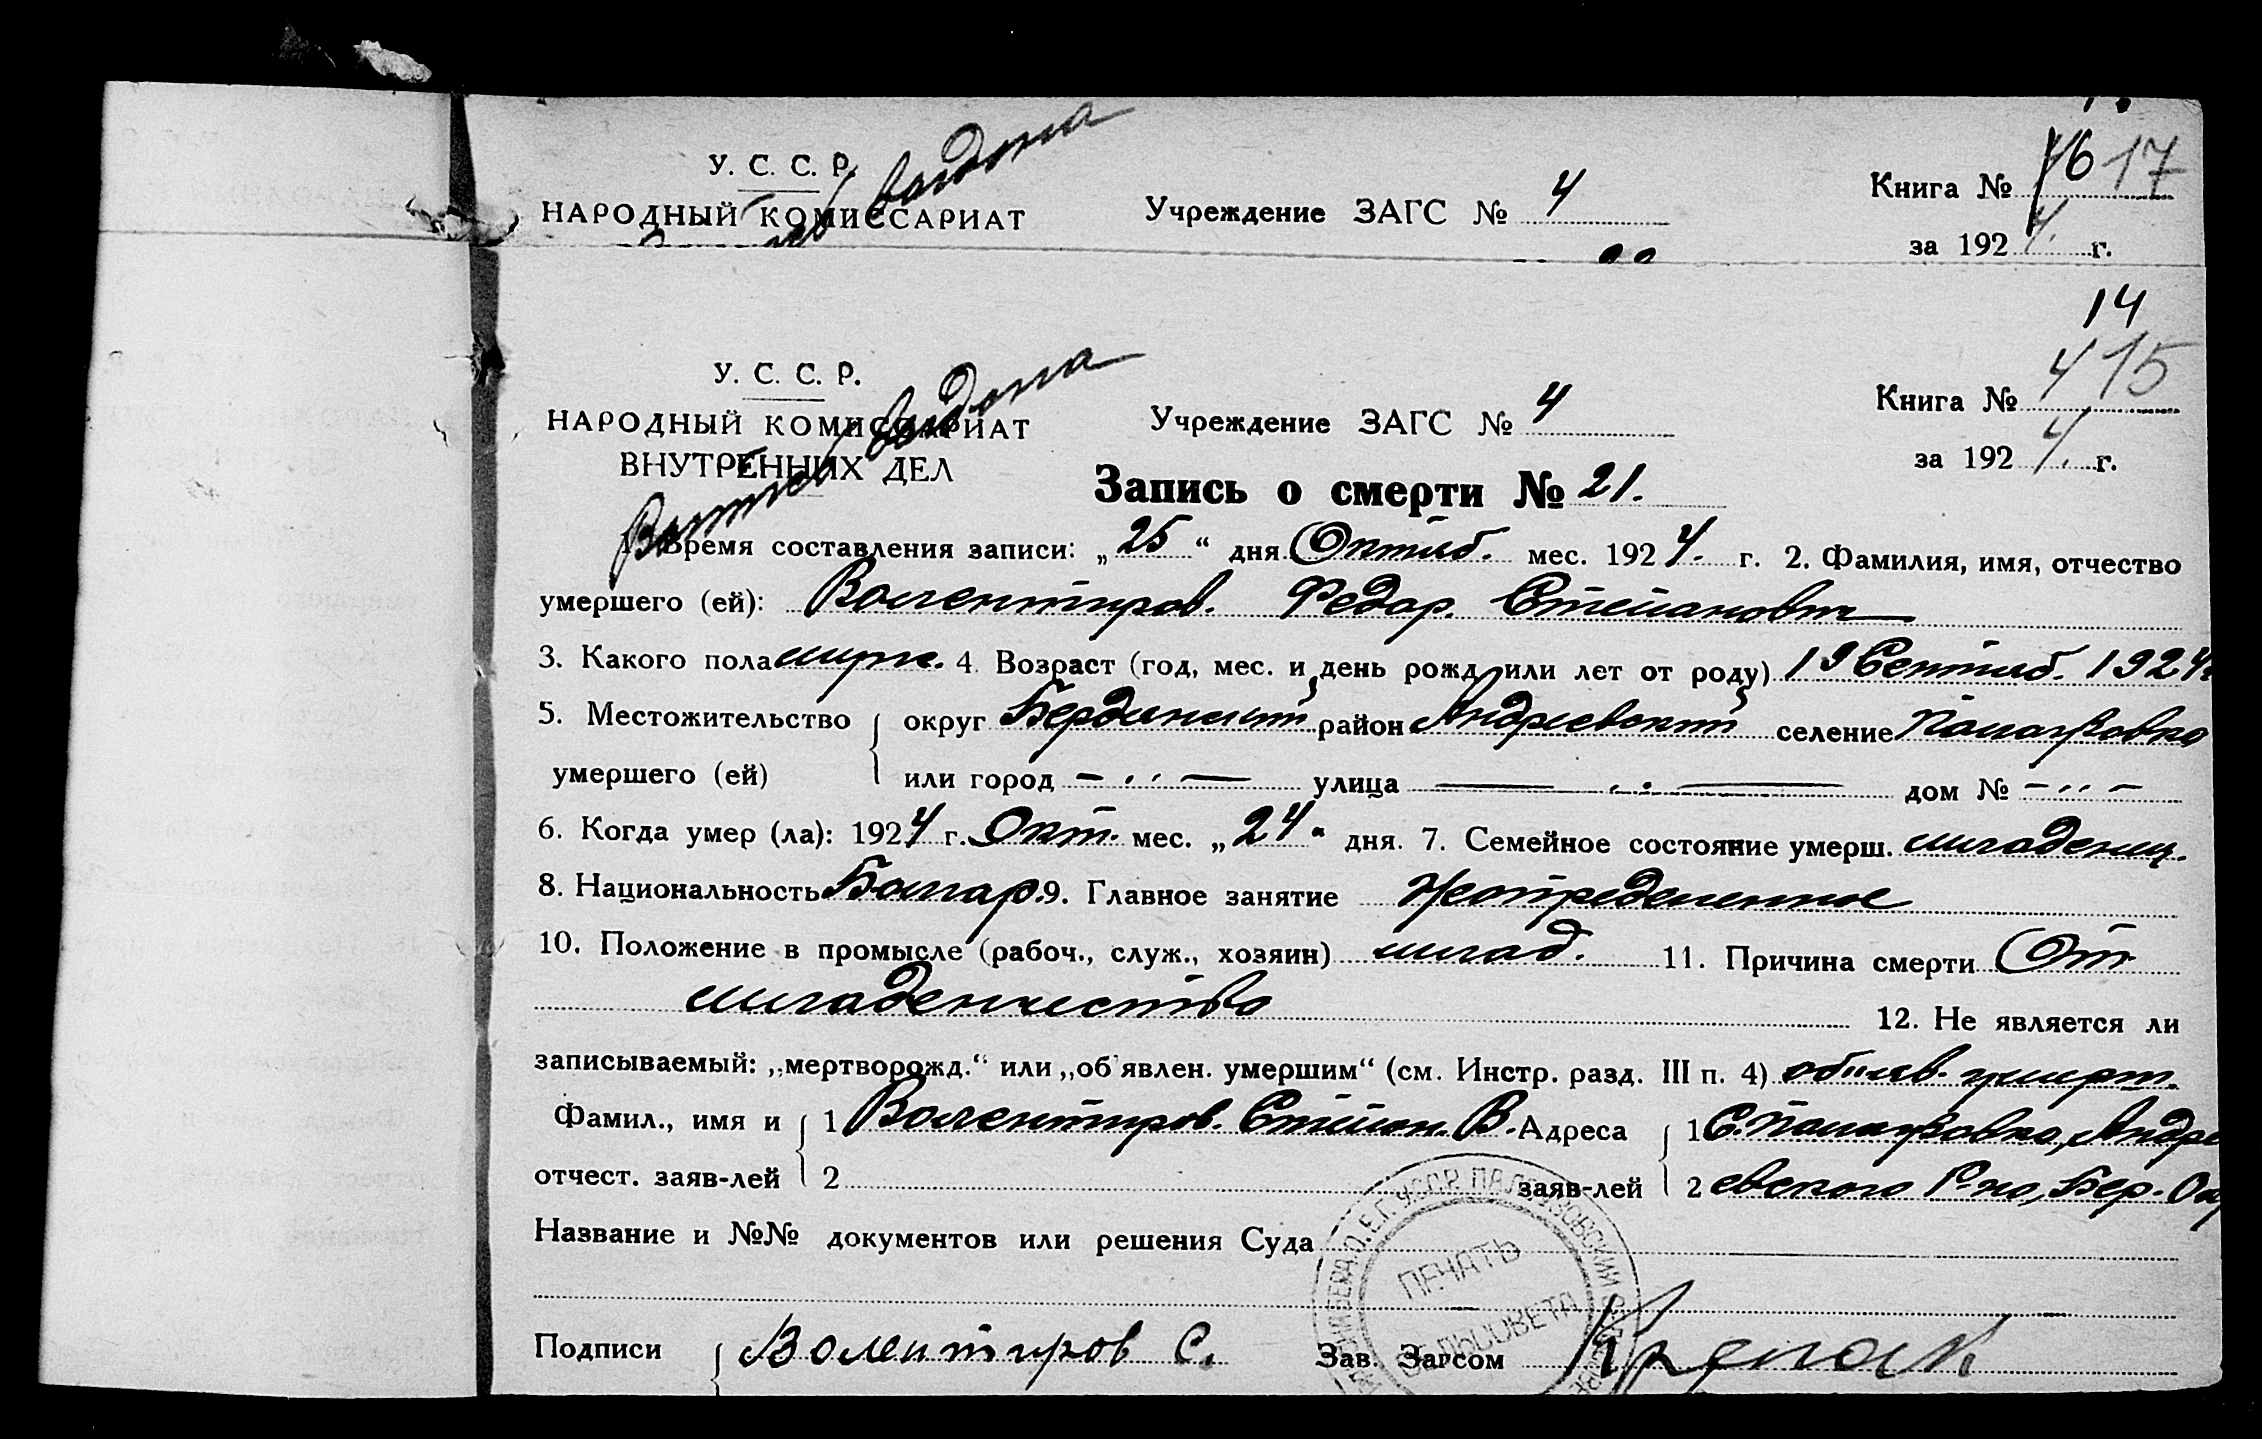 У. С. С. Р.
НАРОДНЫЙ КОМИССАРИАТ
Учреждение ЗАГС № 4
Книга № 16 17
за 1924 г.
14
У. С. С. Р.
НАРОДНЫЙ КОМИССАРИАТ
ВНУТРЕННИХ ДЕЛ
Учреждение ЗАГС № 4
Книга № 4 15
за 1924. г.
Запись о смерти № 21.
1. Время составления записи: „25“ дня Октяб. мес. 1924. г. 2. Фамилия, имя, отчество
умершего (ей): Волентиров. Федор. Степанович
3. Какого пола мужс. 4. Возраст (год, мес. и день рожд. или лет от роду) 19 Сентяб. 1924 г.
5. Местожительство округ Бердянский район Андреевский селение Палаузовка
умершего (ей) или город — улица — дом № —
6. Когда умер (ла): 1924 г. Окт. мес. „24“ дня. 7. Семейное состояние умерш. младенец.
8. Национальность Болгар. 9. Главное занятие Неопределенное
10. Положение в промысле (рабоч., служ., хозяин) млад. 11. Причина смерти От
младенчества
12. Не является ли
записываемый: „мертворожд.“ или „об'явлен. умершим“ (см. Инстр. разд. III п. 4) объяв. умерш.
Фамил., имя и 1 Волентиров. Степан. В. Адреса 1 С. Палаузовка, Андре
отчест. заяв-лей 2 заяв-лей 2 евского Р-на, Бер. Окр
Название и №№ документов или решения Суда
ПЕЧАТЬ
СЕЛЬСОВЕТА
Подписи Волентиров С. Зав. Загсом